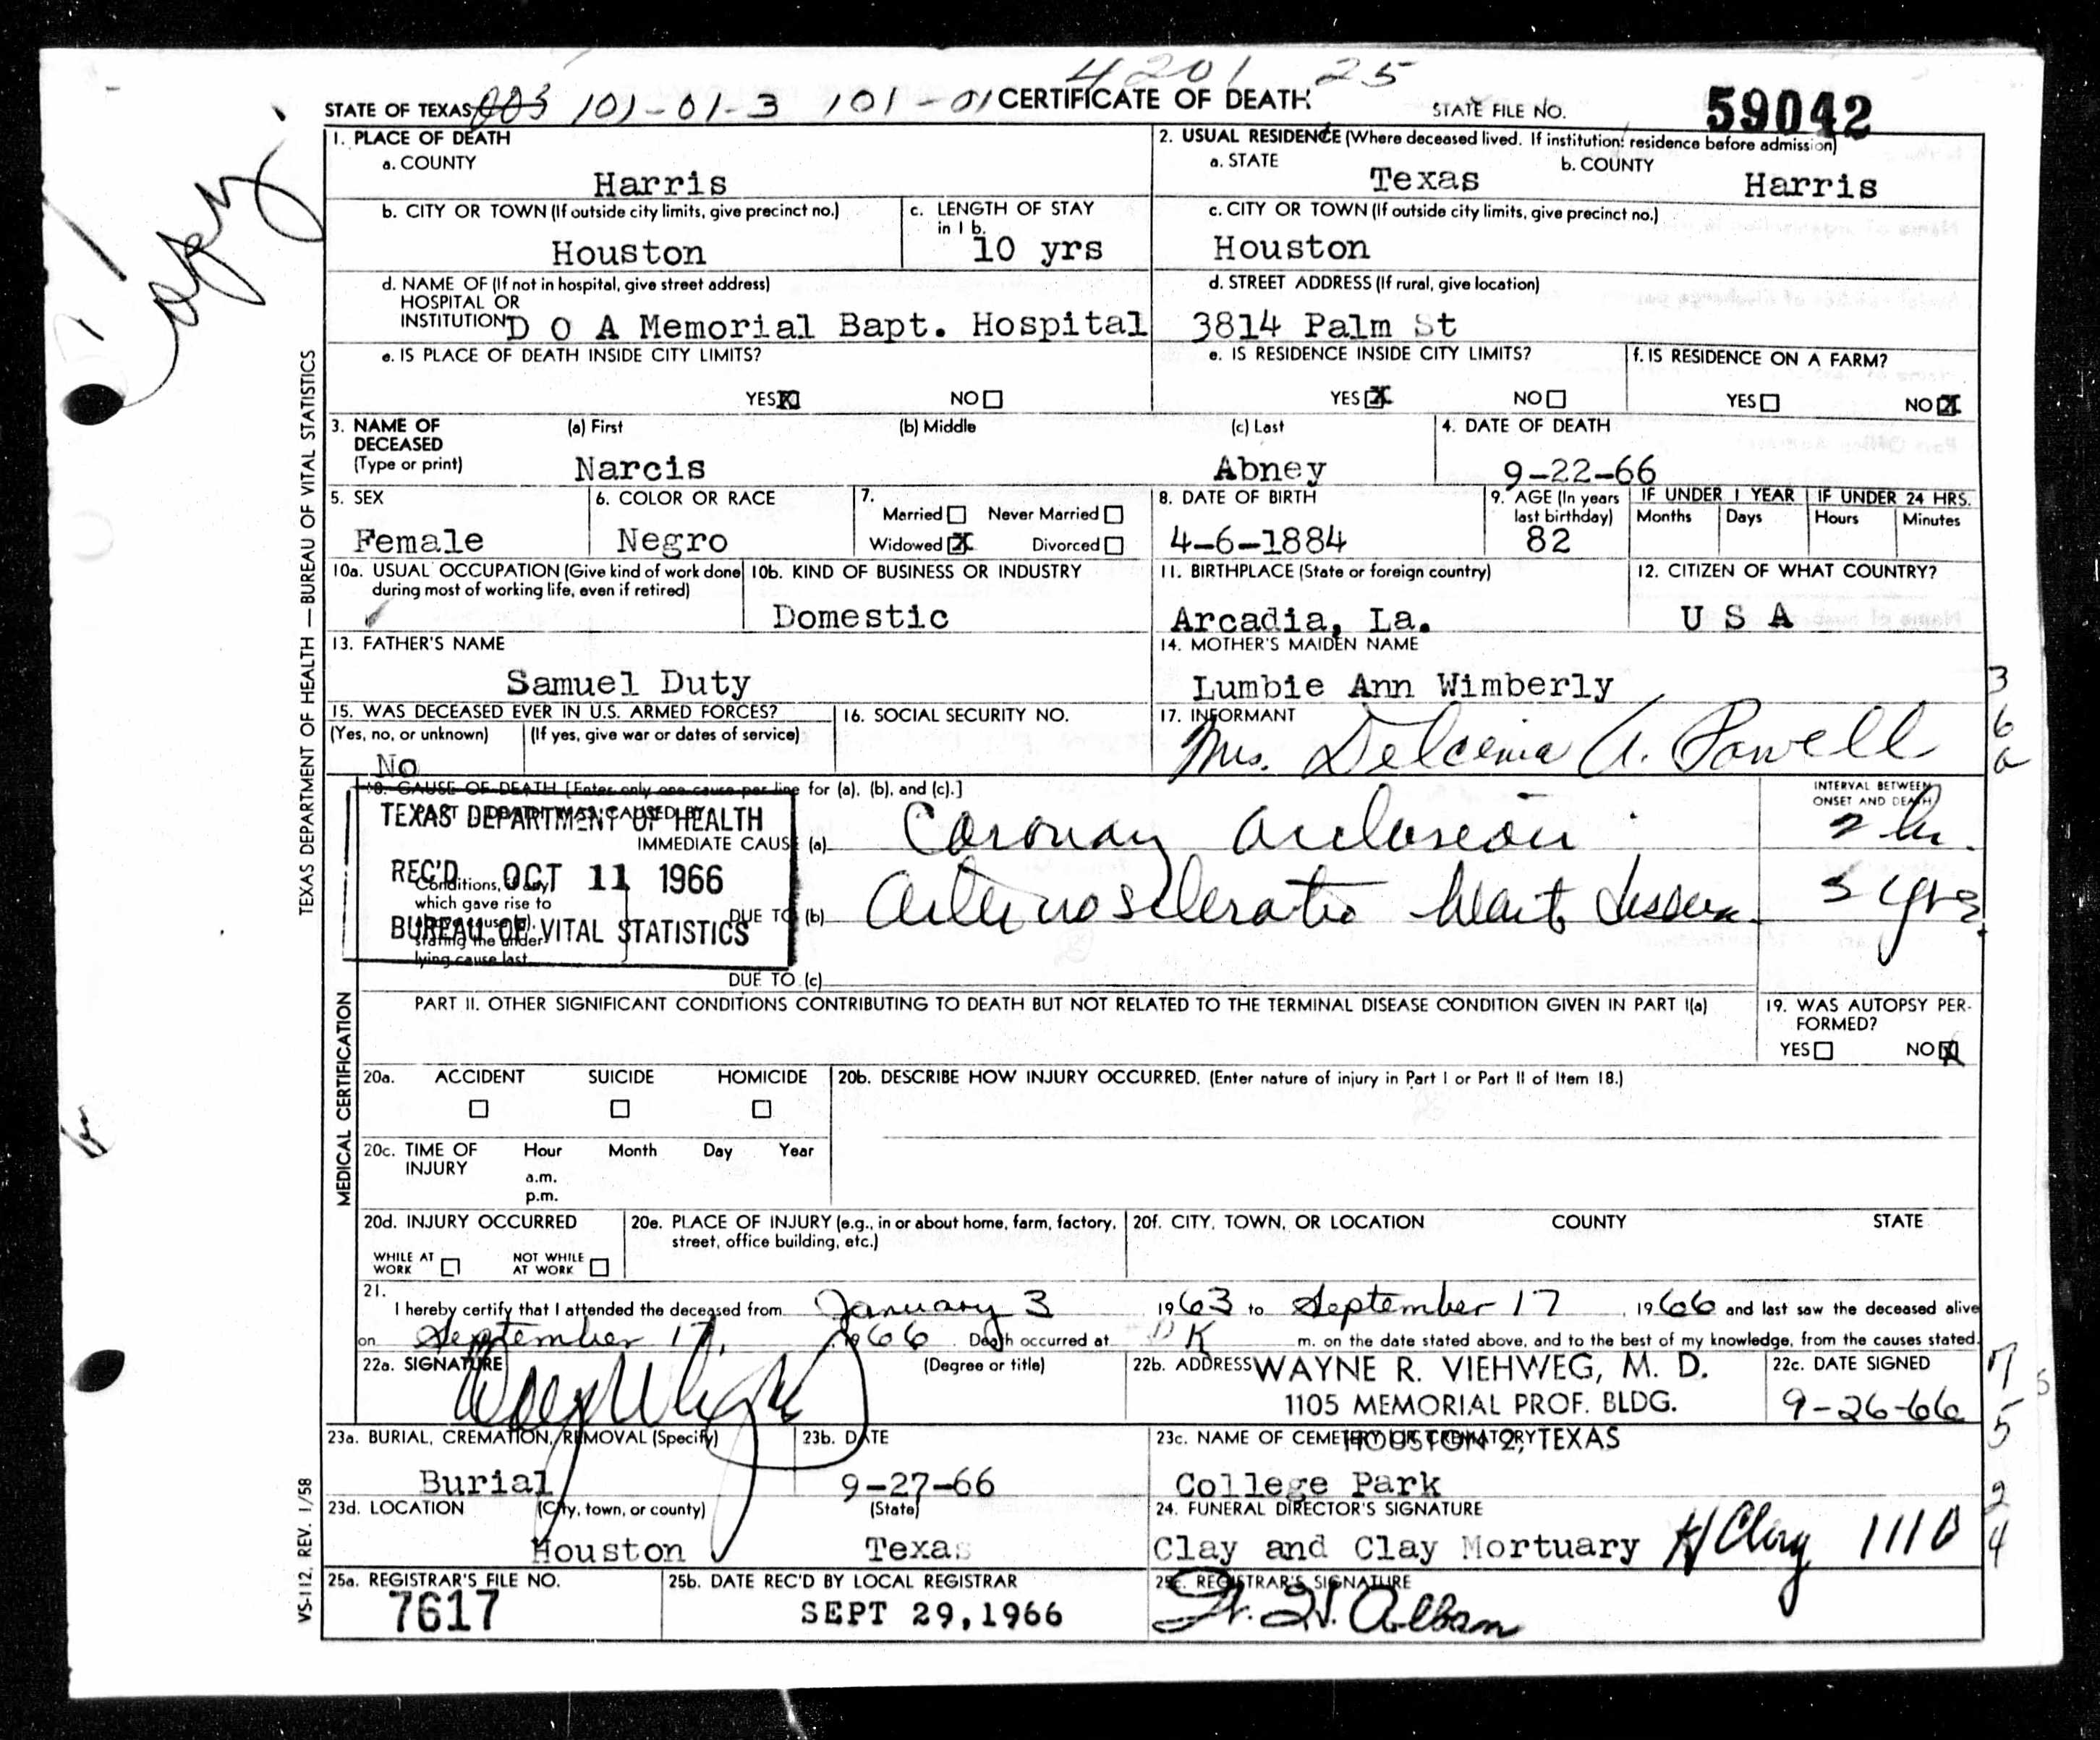 4201 25
STATE OF TEXAS 003 101-01-3 101-01 CERTIFICATE OF DEATH STATE FILE NO. 59042
Copy
1. PLACE OF DEATH
a. COUNTY
Harris
2. USUAL RESIDENCE (Where deceased lived. If institution: residence before admission)
a. STATE b. COUNTY
Texas Harris
b. CITY OR TOWN (If outside city limits, give precinct no.)
Houston
c. LENGTH OF STAY
in 1 b.
10 yrs
c. CITY OR TOWN (If outside city limits, give precinct no.)
Houston
d. NAME OF (If not in hospital, give street address)
HOSPITAL OR
INSTITUTION D O A Memorial Bapt. Hospital
d. STREET ADDRESS (If rural, give location)
3814 Palm St
e. IS PLACE OF DEATH INSIDE CITY LIMITS?
YES X NO
e. IS RESIDENCE INSIDE CITY LIMITS?
YES X NO
f. IS RESIDENCE ON A FARM?
YES NO X
3. NAME OF
DECEASED
(Type or print)
(a) First (b) Middle (c) Last
Narcis Abney
4. DATE OF DEATH
9-22-66
5. SEX
Female
6. COLOR OR RACE
Negro
7.
Married Never Married
Widowed X Divorced
8. DATE OF BIRTH
4-6-1884
9. AGE (In years
last birthday)
82
IF UNDER 1 YEAR
Months Days
IF UNDER 24 HRS.
Hours Minutes
10a. USUAL OCCUPATION (Give kind of work done
during most of working life, even if retired)
10b. KIND OF BUSINESS OR INDUSTRY
Domestic
11. BIRTHPLACE (State or foreign country)
Arcadia, La.
12. CITIZEN OF WHAT COUNTRY?
U S A
13. FATHER'S NAME
Samuel Duty
14. MOTHER'S MAIDEN NAME
Lumbie Ann Wimberly
15. WAS DECEASED EVER IN U.S. ARMED FORCES?
(Yes, no, or unknown) (If yes, give war or dates of service)
No
16. SOCIAL SECURITY NO.
17. INFORMANT
Mrs. Delcenia A. Powell
18. CAUSE OF DEATH [Enter only one cause per line for (a), (b), and (c).]
TEXAS DEPARTMENT OF HEALTH
REC'D OCT 11 1966
BUREAU OF VITAL STATISTICS
IMMEDIATE CAUSE (a) Coronary occlusion
Conditions, if any,
which gave rise to
stating the under-
lying cause last
DUE TO (b) Arteriosclerotic heart disease
DUE TO (c)
INTERVAL BETWEEN
ONSET AND DEATH
2 hr.
5 yrs.
PART II. OTHER SIGNIFICANT CONDITIONS CONTRIBUTING TO DEATH BUT NOT RELATED TO THE TERMINAL DISEASE CONDITION GIVEN IN PART I(a)
19. WAS AUTOPSY PER-
FORMED?
YES NO X
20a. ACCIDENT SUICIDE HOMICIDE
20b. DESCRIBE HOW INJURY OCCURRED. (Enter nature of injury in Part I or Part II of Item 18.)
20c. TIME OF
INJURY
Hour Month Day Year
a.m.
p.m.
20d. INJURY OCCURRED
WHILE AT
WORK
NOT WHILE
AT WORK
20e. PLACE OF INJURY (e.g., in or about home, farm, factory,
street, office building, etc.)
20f. CITY, TOWN, OR LOCATION COUNTY STATE
21.
I hereby certify that I attended the deceased from January 3 1963 to September 17, 1966 and last saw the deceased alive
on September 17, 1966. Death occurred at DK m. on the date stated above, and to the best of my knowledge, from the causes stated.
22a. SIGNATURE (Degree or title)
22b. ADDRESS WAYNE R. VIEHWEG, M. D.
1105 MEMORIAL PROF. BLDG.
HOUSTON 2, TEXAS
22c. DATE SIGNED
9-26-66
23a. BURIAL, CREMATION, REMOVAL (Specify)
Burial
23b. DATE
9-27-66
23c. NAME OF CEMETERY OR CREMATORY
College Park
23d. LOCATION (City, town, or county) (State)
Houston Texas
24. FUNERAL DIRECTOR'S SIGNATURE
Clay and Clay Mortuary H Clay 1110
25a. REGISTRAR'S FILE NO.
7617
25b. DATE REC'D BY LOCAL REGISTRAR
SEPT 29, 1966
25c. REGISTRAR'S SIGNATURE
TEXAS DEPARTMENT OF HEALTH — BUREAU OF VITAL STATISTICS
MEDICAL CERTIFICATION
VS-112, REV. 1/58
3
6
7
5
2
4